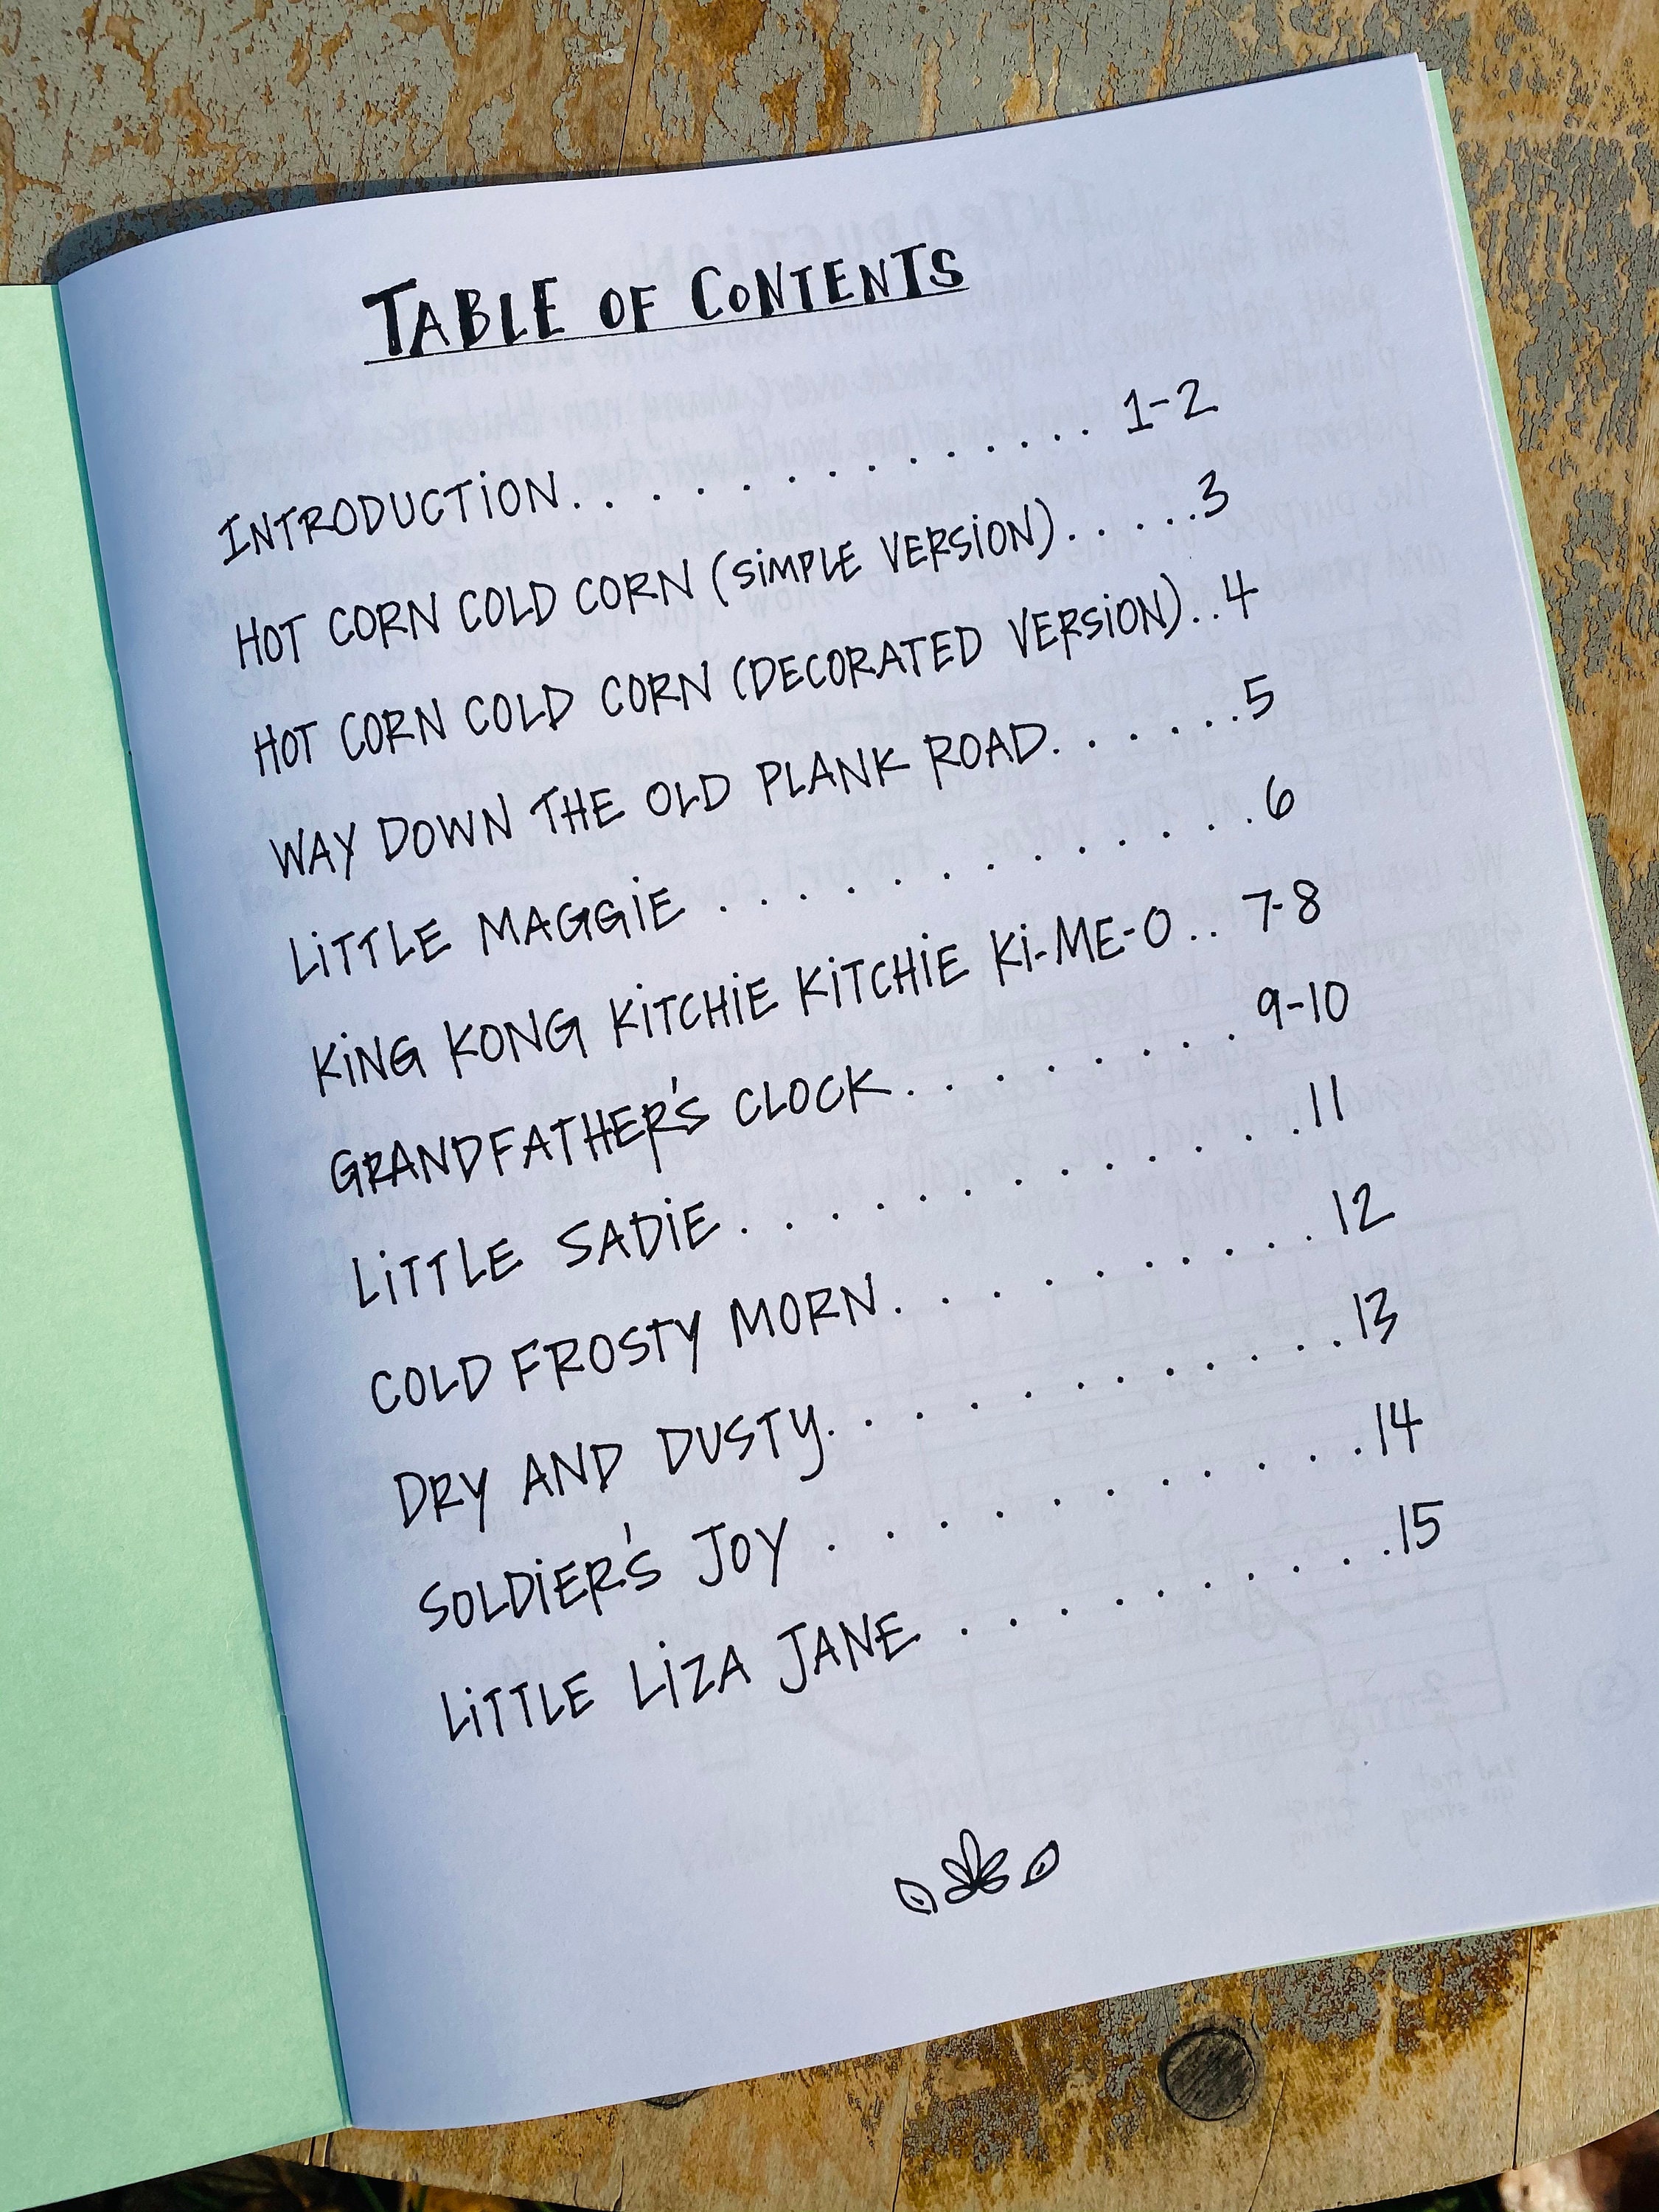 TABLE OF CONTENTS
INTRODUCTION. . . . . . . . . . . . . 1-2
HOT CORN COLD CORN (SIMPLE VERSION). . . . . 3
HOT CORN COLD CORN (DECORATED VERSION). . 4
WAY DOWN THE OLD PLANK ROAD. . . . . . . 5
LITTLE MAGGIE . . . . . . . . . . . . . 6
KING KONG KITCHIE KITCHIE KI-ME-O . . 7-8
GRANDFATHER'S CLOCK. . . . . . . . 9-10
LITTLE SADIE. . . . . . . . . . . . . 11
COLD FROSTY MORN. . . . . . . . . . 12
DRY AND DUSTY. . . . . . . . . . . . 13
SOLDIER'S JOY . . . . . . . . . . . 14
LITTLE LIZA JANE . . . . . . . . . 15